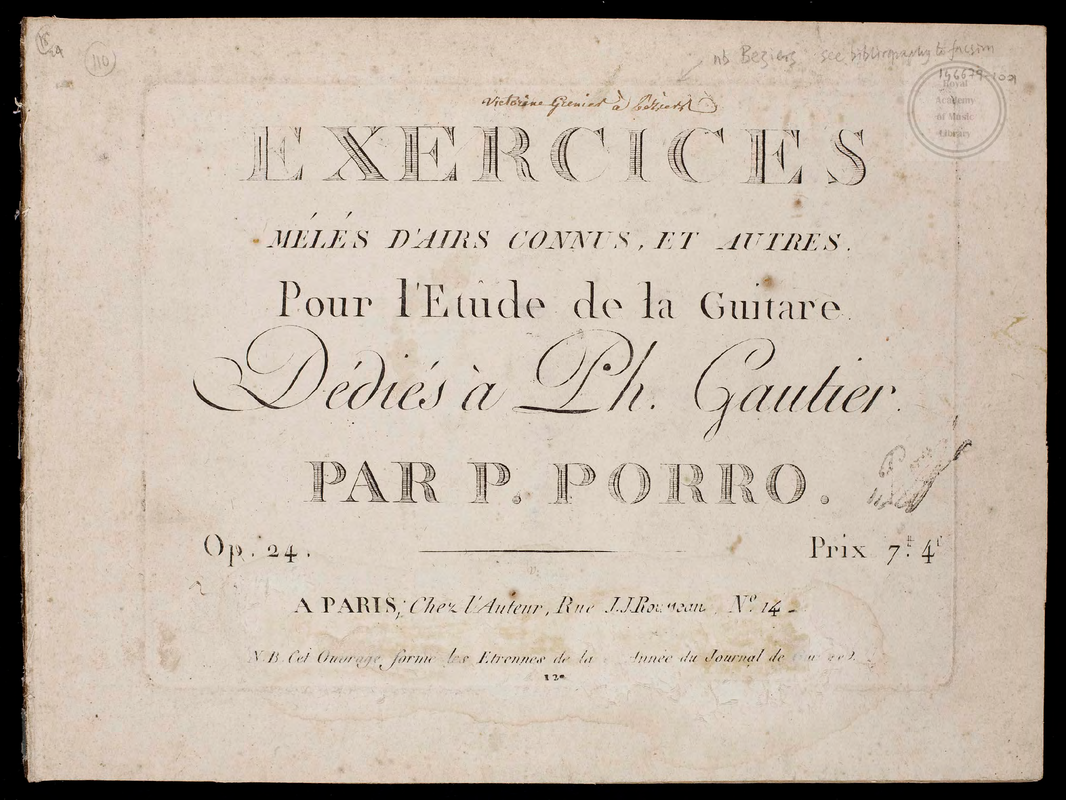 110
nb Beziers see bibliography to facsim
Royal
Academy
of Music
Library
Victorine Grenier à
EXERCICES
MÉLÉS D'AIRS CONNUS, ET AUTRES.
Pour l'Etude de la Guitare.
Dédiés à Ph. Gautier.
PAR P. PORRO.
Op. 24. Prix 7.tt 4s
A PARIS, Chez l'Auteur, Rue J.J. Rousseau, No. 14
N.B. Cet Ouvrage forme les Etrennes de la Année du Journal de
120